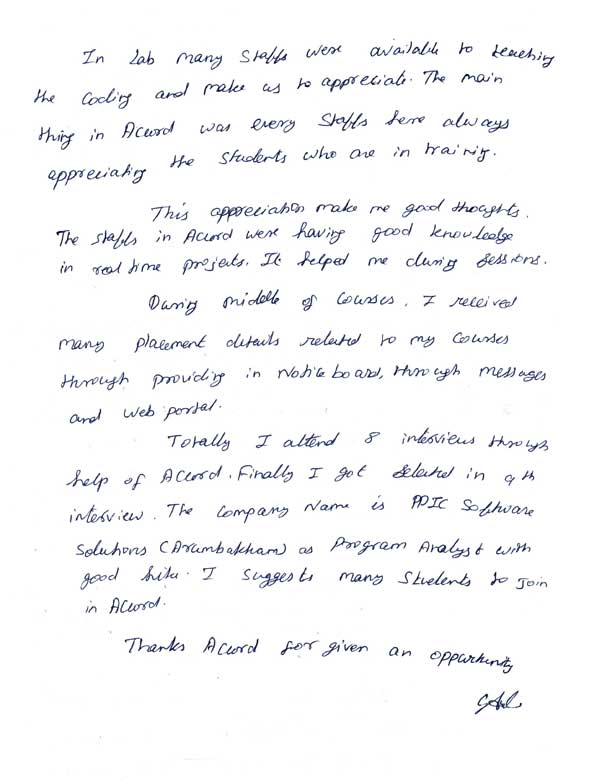 In Lab many Staffs were available to teaching
the Coding and make us to appreciate. The main
thing in Accord was every Staffs here always
appreciating the Students who are in trainig.
This appreciation make me good thoughts.
The staffs in Accord were having good knowledge
in real time projects. It helped me during Sessions.
During middle of Courses, I received
many placement details related to my Courses
through providing in Notice board, through messages
and web portal.
Totally I attend 8 interviews through
help of Accord. Finally I got Selected in 9th
interview. The Company Name is PPIC Software
Solutions (Arumbakkam) as Program Analyst with
good I Suggests many Students to Join
in Accord.
Thanks Accord for given an oppartunity